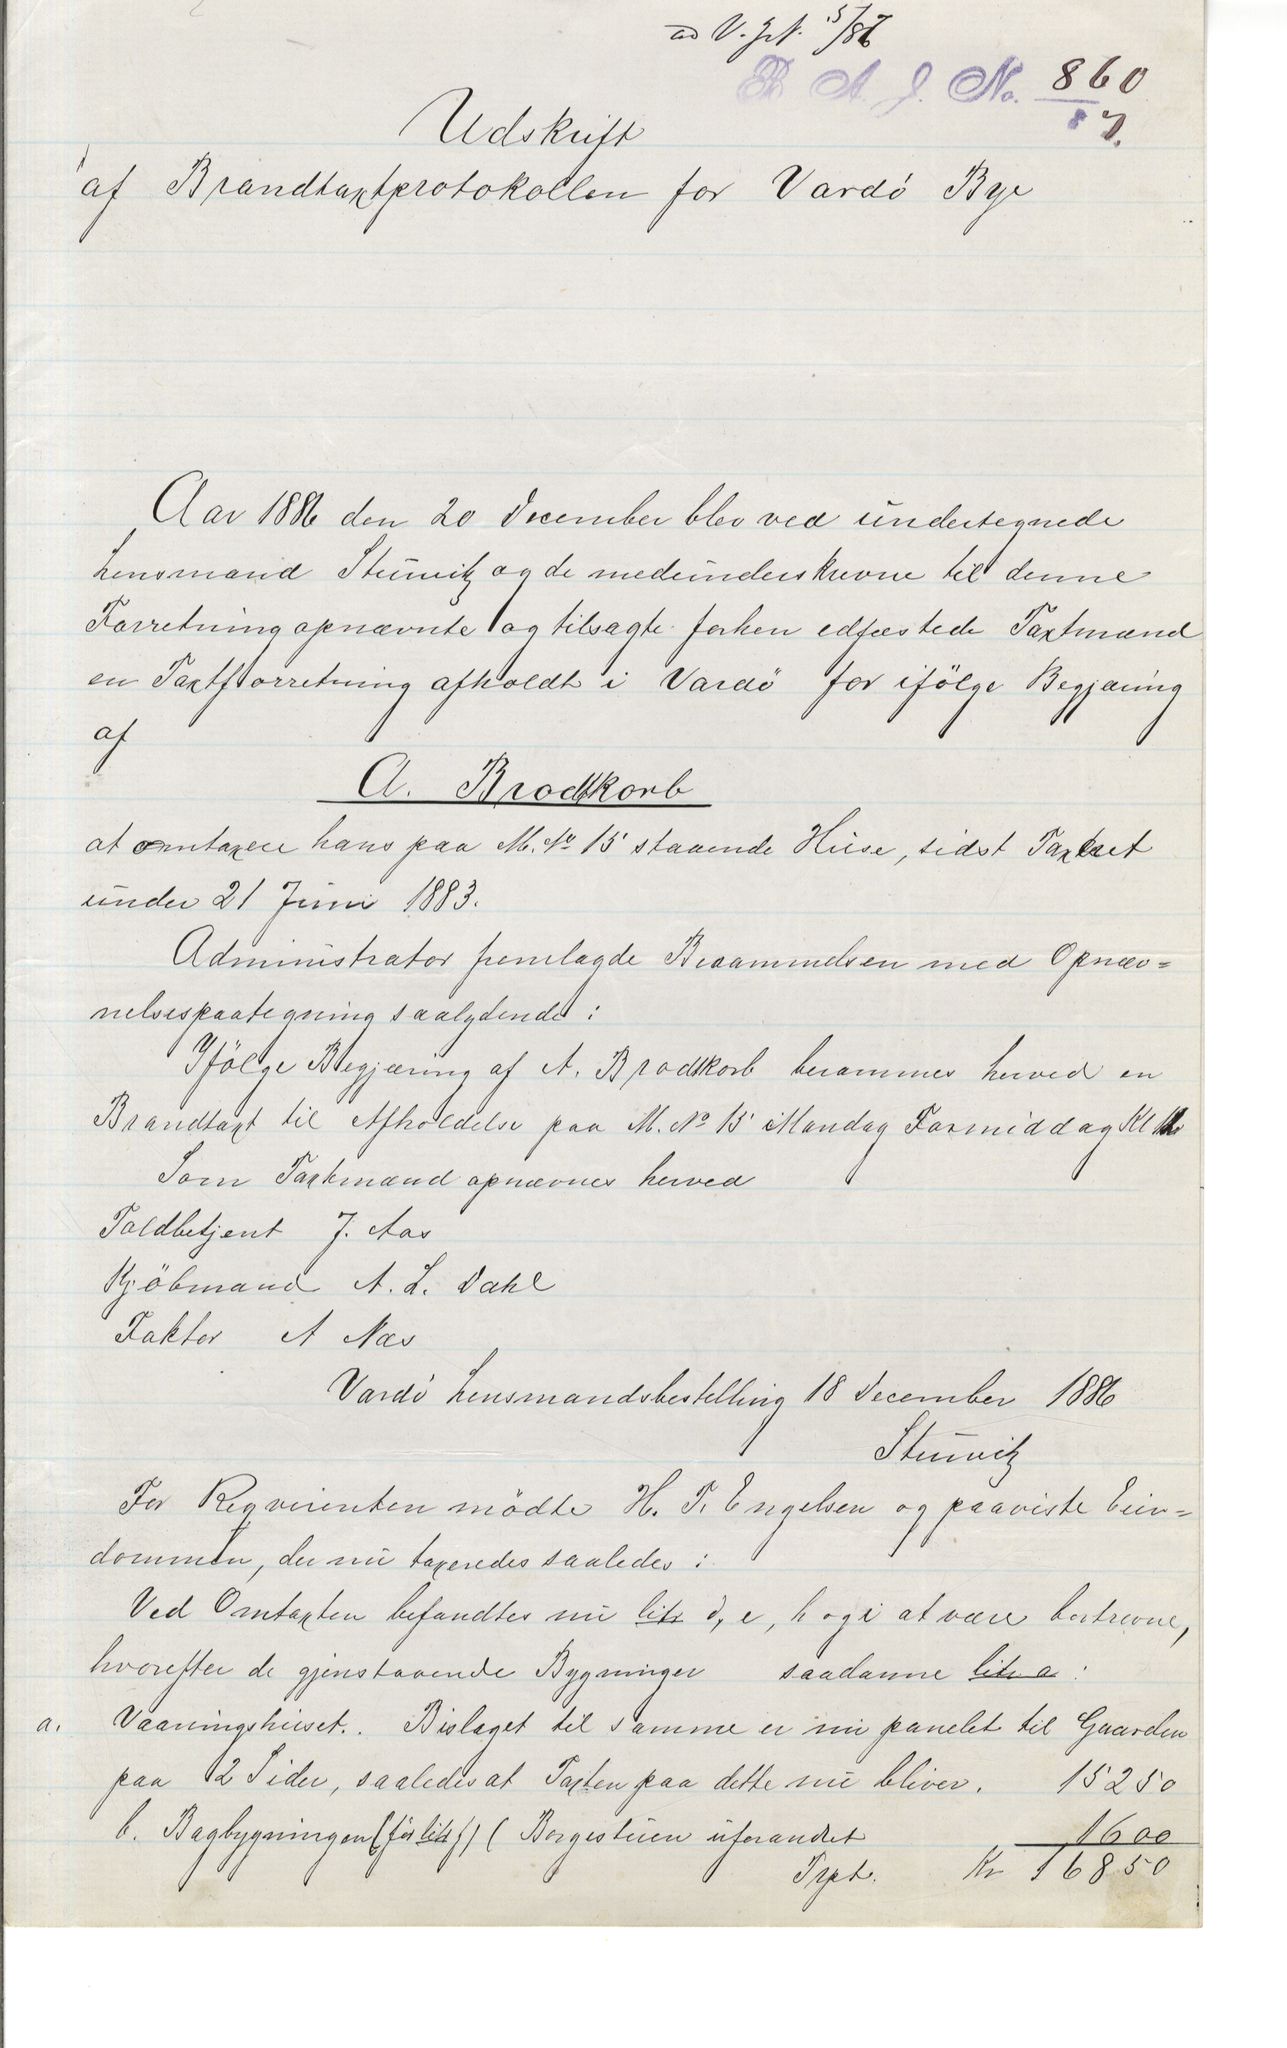 ad V. J.N. 5/87
B. A. J. No. 860/87.
Udskrift
af Brandtaxtprotokollen for Vardö Bye
Aar 1886 den 20 December blev ved undertegnede
Lensmand Stuwitz og de medunderskrevne til denne
Forretning opnævnte og tilsagte forhen edfæstede Taxtmænd
en Taxtforretning afholdt i Vardö for ifölge Begjæring
af
A. Brodtkorb
at omtaxere hans paa M. No 15 staaende Huse, sidst Taxeret
under 21 Juni 1883.
Administrator fremlagde Berammelsen med Opnæv=
nelsespaategning saalydende:
Ifölge Begjæring af A. Brodtkorb berammes herved en
Brandtaxt til Afholdelse paa M. No 15 Mandag Formiddag Kl
Som Taxtmænd opnævnes herved
Toldbetjent J. Aas
Kjöbmand A. L. Dahl
Faktor A Næs
Vardö Lensmandsbestilling 18 December 1886
Stuwitz
For Reqvirenten mödte H. T. Engelsen og paaviste Eien=
dommen, der nu taxeredes saaledes:
Ved Omtaxten befandtes nu litr d, e, h og i at være bortrevne,
hvorefter de gjenstaaende Bygninger saadanne litr a:
a. Vaaningshuset. Bislaget til samme er nu panelet til Gaarden
paa 2 Sider, saaledes at Taxten paa dette nu bliver. 15250
b. Bagbygningen (för litr f) (Borgestuen uforandret 1600
Trpt. Kr 16850